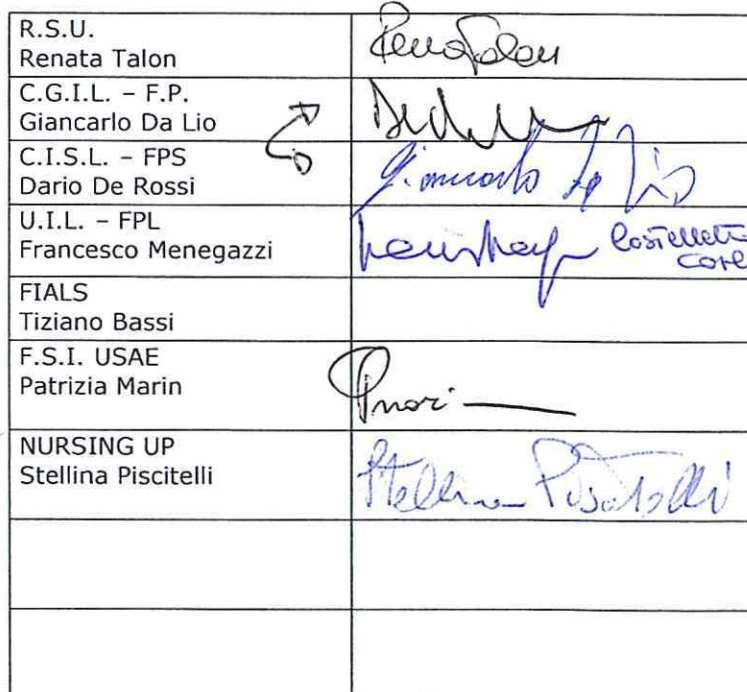 R.S.U.
Renata Talon
Renata Talon
C.G.I.L. – F.P.
Giancarlo Da Lio
C.I.S.L. – FPS
Dario De Rossi
Giancarlo Da Lio
U.I.L. – FPL
Francesco Menegazzi
FIALS
Tiziano Bassi
F.S.I. USAE
Patrizia Marin
NURSING UP
Stellina Piscitelli
Stellina Piscitelli